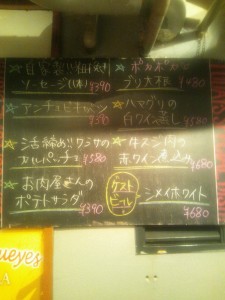 自家製!!粗挽き
ソーセージ(1本) ¥390
アンチョビキャベツ
¥390
活〆め!!クラサの
カルパッチョ ¥580
お肉屋さんの
ポテトサラダ ¥390
ポカポカ
ブリ大根 ¥480
ハマグリの
白ワイン蒸し ¥580
牛スジ肉の
赤ワイン煮込み ¥680
ゲスト
ビール
シメイホワイト
¥680
ueyes